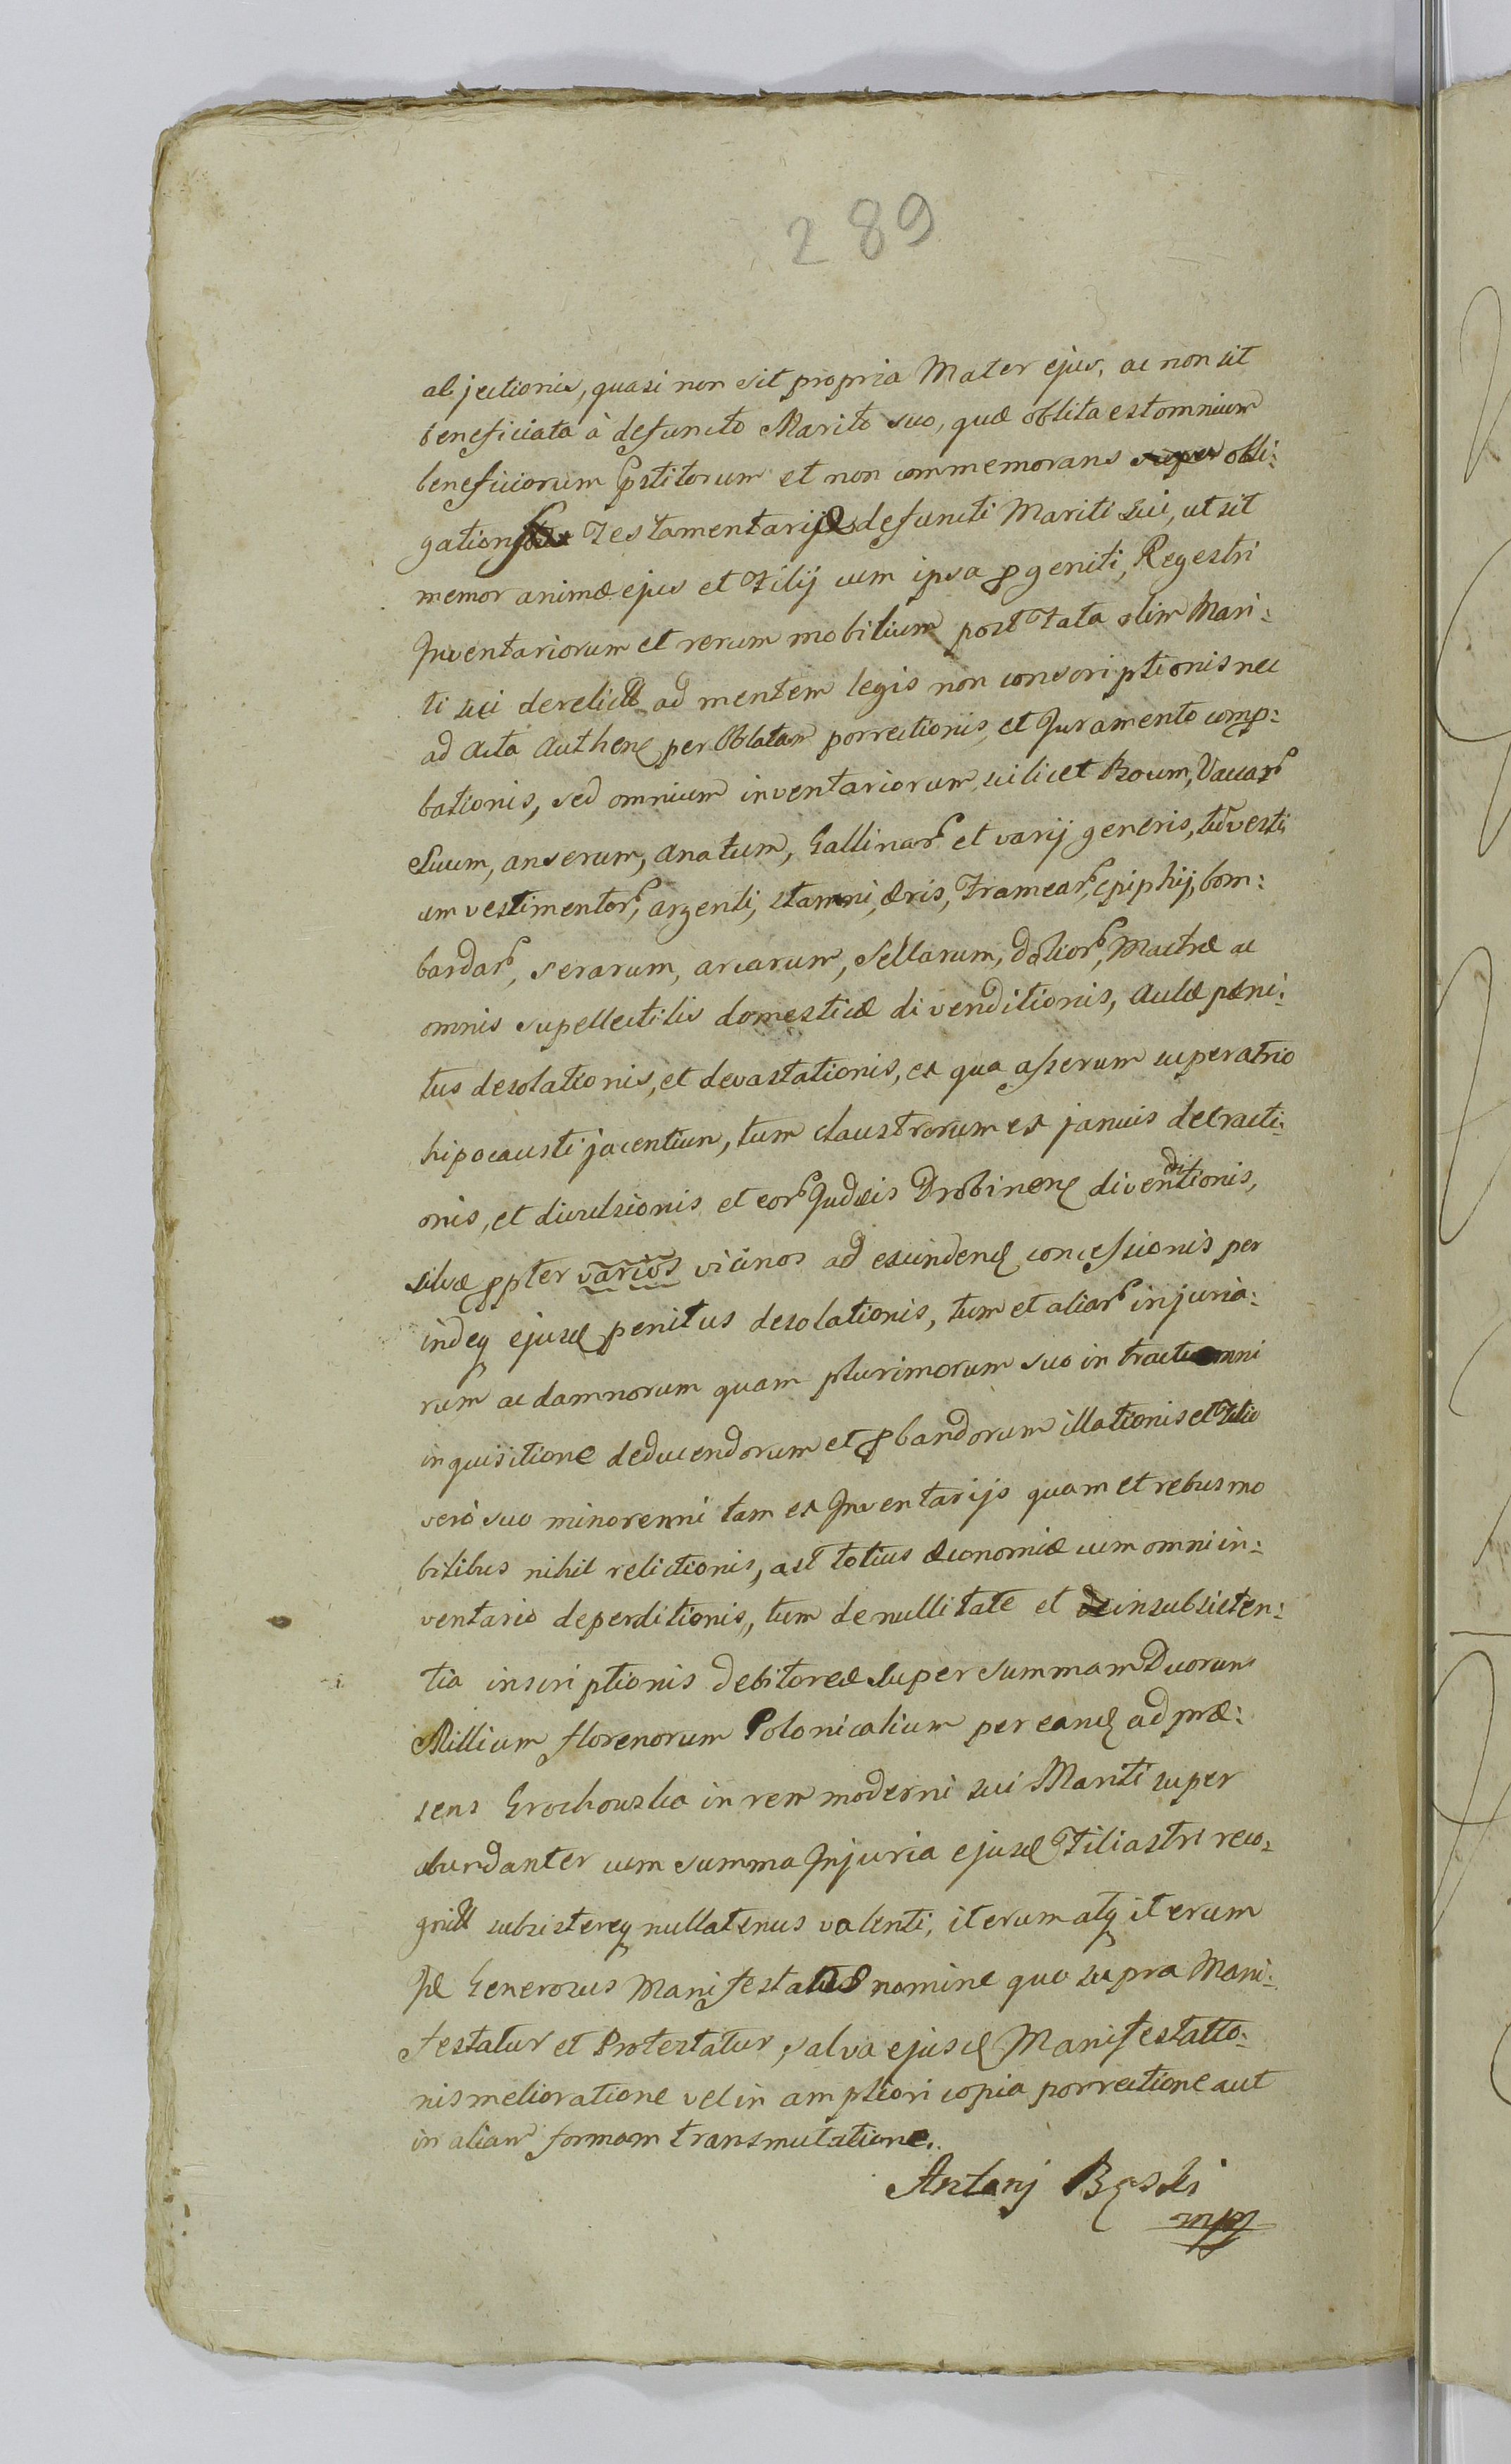 289
abjectionis, quasi non sit propria Mater ejus, ac non sit
beneficiata à defuncto Marito suo, quæ oblita est omnium
beneficiorum pstitorum et non commemorans super obli:
gation Testamentarijs defuncti Mariti sui, ut sit
memor animæ ejus et Filij cum ipsa pgeniti, Regestri
Inventariorum et rerum mobilium post Fata olim Mari:
ti sui derelict ad mentem legis non conscriptionis nec
ad Acta Authen per Oblatam porrectionis, et Juramento comp:
bationis, sed omnium inventariorum scilicet Boum, Vaccar
Suum, anserum, anatum, Gallinar et varij generis, tũ vesti
um vestimentor, argenti, stamni, æris, Framear, Epiphij, bom:
bardar, serarum, arcarum, Sellarum, dolior, Mactræ ac
omnis supellectilis domesticæ divenditionis, Aulæ pæni:
tus desolationis, et devastationis, ex qua asserum super atrio
hipocausti jacentium, tum claustrorum ex januis detracti:
onis, et divulsionis et eor Judæis Drobinen divenditionis,
silvæ ppter varios vicinos ad excinden concessionis per
indeq ejusd penitus desolationis, tum et aliar injuria:
rum ac damnorum quam plurimorum suo in tractu omni
inquisitione deducendorum et pbandorum illationis et Filio
verò suo minorenni tam ex Inventarijs quam et rebus mo
bilibus nihil relictionis, ast totius æconomiæ cum omni in:
ventario deperditionis, tum de nullitate et de insubsisten:
tia inscriptionis debitoreæ super summam Duorum
Millium florenorum Polonicalium per eand ad præ:
sens Grochowska in rem moderni sui Mariti super
abundanter cum summa Injuria ejusd Filiastri reco:
gnit subsistereq nullatenus valenti, iterum atq iterum
Generosus Manifestans nomine quo supra Mani:
festatur et Protestatur, salva ejusd Manifestatio:
nis melioratione vel in ampliori copia porrectione aut
in aliam formam transmutatione.
Antoni Bęski
mpp